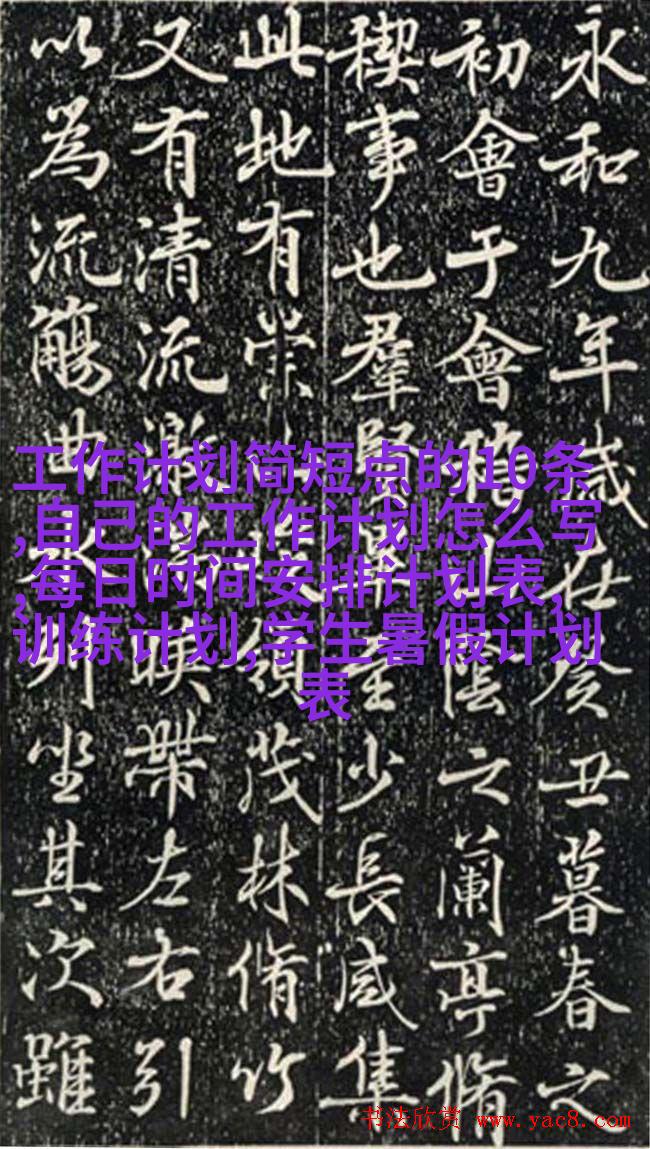 永和九年歲在癸丑暮春之
初會于會稽山陰之蘭亭脩
稧事也羣賢畢至少長咸集
此地有崇領茂林脩竹
又有清流激暎帶左右引
以為流觴曲水列坐其次雖
工作计划简短点的10条
,自己的工作计划怎么写
,每日时间安排计划表,
训练计划,学生暑假计划
表
书法欣赏 www.yac8.com